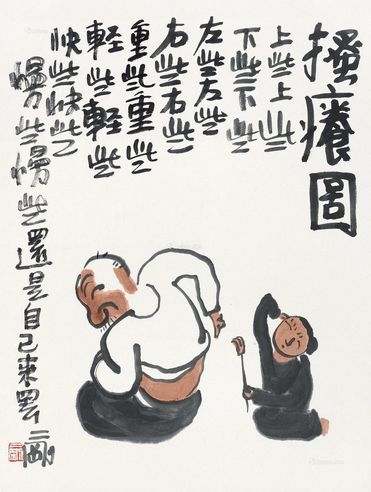 搔癢圖
上些上些
下些下些
左些左些
右些右些
重些重些
輕些輕些
快些快些
慢些慢些還是自己來罢 二剛